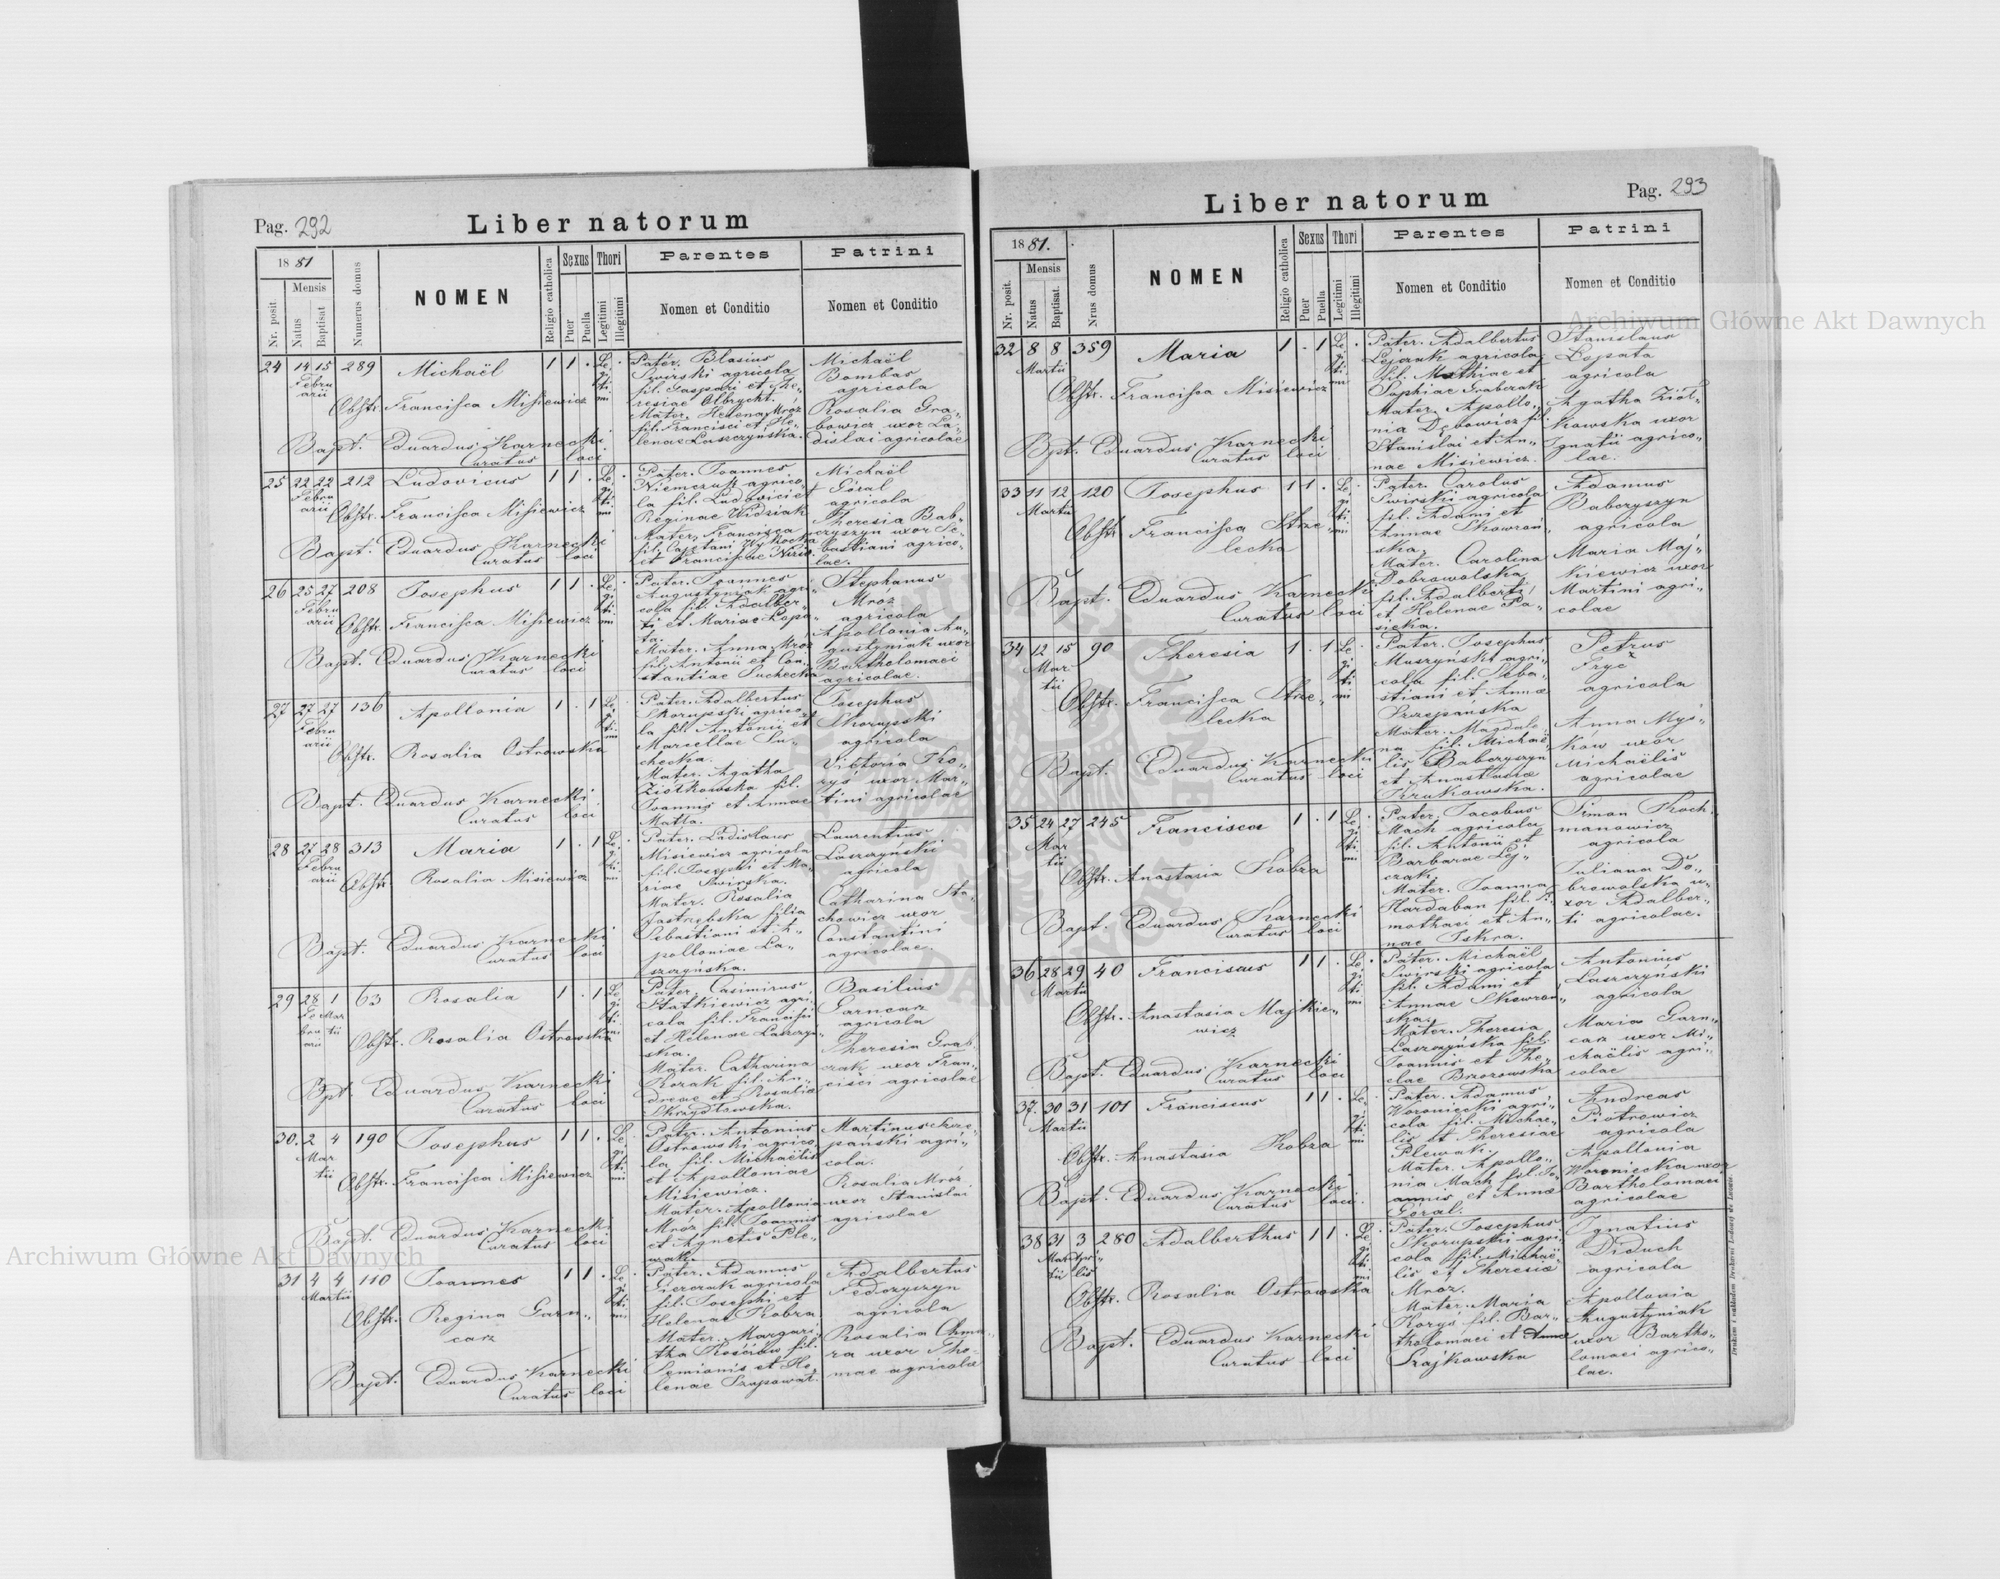 Pag. 292
Liber natorum
18 81
Mensis
Nr. posit.
Natus
Baptisat
Numerus domus
NOMEN
Religio catholica
Sexus
Puer
Puella
Thori
Legitimi
Illegitimi
Parentes
Nomen et Conditio
Patrini
Nomen et Conditio
24 14 15 289 Michaël 1 1 .
Februarii
Obstr. Francisca Misiewicz
Bapt. Eduardus Karnecki
Curatus loci
Pater. Blasius
Swirski agricola
fil. Gaspari et The-
resiae Olbrycht.
Mater. Helena Mróz
fil. Francisci et He-
lenae Laszczyńska.
Michaël
Bombas
agricola
Rosalia Gra-
bowicz uxor La-
dislai agricolae
25 22 22 212 Ludovicus 1 1 .
Februarii
Obstr. Francisca Misiewicz
Bapt. Eduardus Karnecki
Curatus loci
Pater. Joannes
Niemczuk agrico-
la fil. Ludovici et
Reginae Widziak
Mater. Francisca
Michaël
Góral
agricola
Theresia Bab-
czyszyn uxor Se-
bastiani agrico-
lae.
26 25 27 208 Josephus 1 1 .
Februarii
Obstr. Francisca Misiewicz
Bapt. Eduardus Karnecki
Curatus loci
Pater. Joannes
Augustyniak agri-
cola fil. Adalber-
ti et Mariae Łopa-
ta.
Mater. Anna Mróz
fil. Antonii et Con-
stantiae Suchecka
Stephanus
Mróz
agricola
Apollonia Au-
gustyniak uxor
Bartholomaei
agricolae.
27 27 27 136 Apollonia 1 . 1
Februarii
Obstr. Rosalia Ostrowska
Bapt. Eduardus Karnecki
Curatus loci
Pater. Adalbertus
Skorupski agrico-
la fil. Antonii et
Marcellae Su-
checka.
Mater. Agatha
Ziółkowska fil.
Joannis et Annae
Matla.
Josephus
Skorupski
agricola
Victoria Ko-
ryś uxor Mar-
tini agricolae
28 27 28 313 Maria 1 . 1
Februarii
Obstr. Rosalia Misiewicz
Bapt. Eduardus Karnecki
Curatus loci
Pater. Ladislaus
Misiewicz agricola
fil. Josephi et Ma-
riae Swirska.
Mater. Rosalia
Jastrzębska filia
Sebastiani et A-
polloniae La-
szczyńska.
Laurentius
Laszczyński
agricola
Catharina Sta-
chowicz uxor
Constantini
agricolae.
29 28 1 63 Rosalia 1 . 1
Obstr. Rosalia Ostrowska
Bpt. Eduardus Karnecki
Curatus loci
Pater. Casimirus
Statkiewicz agri-
cola fil. Francisci
et Helenae Laszczyń-
ska.
Mater. Catharina
Kozak fil. An-
dreae et Rosaliae
Skrzydłowska.
Basilius
Garncarz
agricola
Theresia Grab-
czak uxor Fran-
cisci agricolae
30. 2 4 190 Josephus 1 1 .
Martii
Obstr. Francisca Misiewicz
Bapt. Eduardus Karnecki
Curatus loci
Pater. Antonius
Ostrowski agrico-
la fil. Michaëlis
et Apolloniae
Misiewicz.
Mater. Apollonia
Mróz fil. Joannis
et Agnetis Ple-
wak.
Martinus Szcze-
pański agri-
cola.
Rosalia Mróz
uxor Stanislai
agricolae
31 4 4 110 Joannes 1 1 .
Martii
Obstr. Regina Garn-
carz
Bapt. Eduardus Karnecki
Curatus loci
Pater. Adamus
Sierczak agricola
fil. Josephi et
Helenae Kobza
Mater. Margari-
tha Kościów fil.
Semionis et He-
lenae Szapowat.
Adalbertus
Fedczyszyn
agricola
Rosalia Chma-
ra uxor Tho-
mae agricolae
Liber natorum
Pag. 293
18 81.
Mensis
Nr. posit.
Natus
Baptisat.
Nrus domus
NOMEN
Religio catholica
Sexus
Puer
Puella
Thori
Legitimi
Illegitimi
Parentes
Nomen et Conditio
Patrini
Nomen et Conditio
32 8 8 359 Maria 1 . 1
Martii
Obstr. Francisca Misiewicz
Bpt. Eduardus Karnecki
Curatus loci
Pater. Adalbertus
Lejczak agricola
fil. Mathiae et
Sophiae Grabczak
Mater. Apollo-
nia Dębowicz fil.
Stanislai et An-
nae Misiewicz.
Stanislaus
Łopata
agricola
Agatha Ziół-
kowska uxor
Ignatii agrico-
lae.
33 11 12 120 Josephus 1 1 .
Martii
Obstr. Francisca Strze-
lecka
Bapt. Eduardus Karnecki
Curatus loci
Pater. Carolus
Swirski agricola
fil. Adami et
Annae Skowroń-
ska.
Mater. Carolina
Dobrowolska
fil. Adalberti
et Helenae Pa-
siecka.
Adamus
Baberyszyn
agricola
Maria Maj-
kiewicz uxor
Martini agri-
colae
34 12 15 90 Theresia 1 . 1
Martii
Obstr. Francisca Strze-
lecka
Bapt. Eduardus Karnecki
Curatus loci
Pater. Josephus
Muszyński agri-
cola fil. Seba-
stiani et Annae
Szczepańska
Mater. Magdale-
na fil. Michaë-
lis Baberyszyn
et Anastasiae
Krukowska.
Petrus
Fryc
agricola
Anna Myś-
ków uxor
Michaëlis
agricolae
35 24 27 245 Francisca 1 . 1
Martii
Obstr. Anastasia Kobza
Bapt. Eduardus Karnecki
Curatus loci
Pater. Jacobus
Mach agricola
fil. Antonii et
Barbarae Lej-
czak.
Mater. Joanna
Hardaban fil. Ti-
mothaei et An-
nae Iskra.
Simon Koch-
manowicz
agricola
Juliana Do-
browolska u-
xor Adalber-
ti agricolae.
36 28 29 40 Franciscus 1 1 .
Martii
Obstr. Anastasia Majkie-
wicz
Bapt. Eduardus Karnecki
Curatus loci
Pater. Michaël
Swirski agricola
fil. Adami et
Annae Skowroń-
ska.
Mater. Theresia
Laszczyńska fil.
Joannis et The-
clae Brzozowska
Antonius
Laszczyński
agricola
Maria Garn-
carz uxor Mi-
chaëlis agri-
colae
37. 30 31 101 Franciscus 1 1 .
Martii
Obstr. Anastasia Kobza
Bapt. Eduardus Karnecki
Curatus loci.
Pater. Adamus
Woroniecki agri-
cola fil. Michaë-
lis et Theresiae
Plewak.
Mater. Apollo-
nia Mach fil. Jo-
annis et Annae
Góral.
Andreas
Piotrowicz
agricola
Apollonia
Woroniecka uxor
Bartholomaei
agricolae
38 31 3 280 Adalberthus 1 1 .
Martii Aprilis
Obstr. Rosalia Ostrowska
Bapt. Eduardus Karnecki
Curatus loci
Pater. Josephus
Skorupski agri-
cola fil. Michaë-
lis et Theresiae
Mroz.
Mater. Maria
Koryś fil. Bar-
tholomaei et Annae
Szajkowska
Ignatius
Diduch
agricola
Apollonia
Augustyniak
uxor Bartho-
lomaei agrico-
lae.
Archiwum Główne Akt Dawnych
Archiwum Główne Akt Dawnych